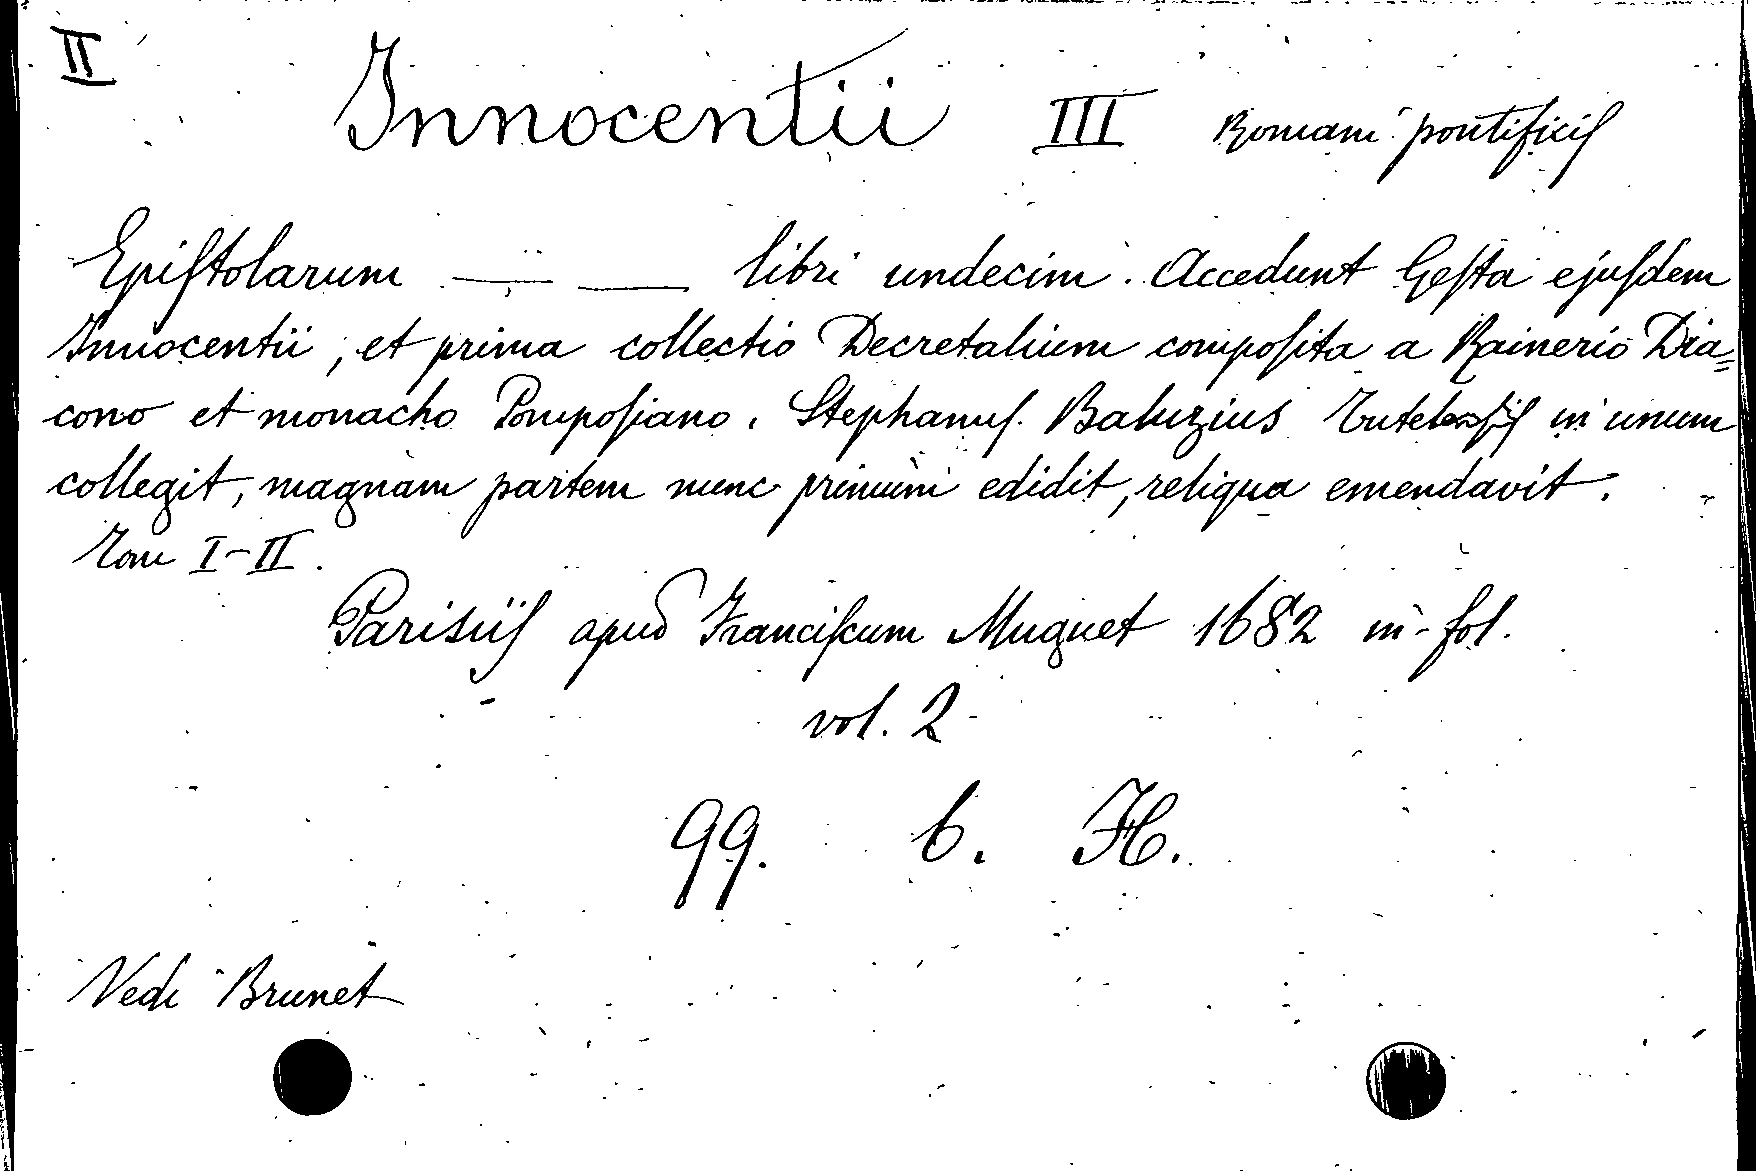 II
Innocentii III Romani pontificis
Epistolarum — — libri undecim. Accedunt Gesta ejusdem
Innocentii, et prima collectio Decretalium composita a Rainerio Dia=
cono et monacho Pomposiano. Stephanus Baluzius Tutelensis in unum
collegit, magnam partem nunc primum edidit, reliqua emendavit.
Tom I-II.
Parisiis apud Franciscum Muguet 1682 in-fol.
vol. 2
99. 6. H.
Vedi Brunet